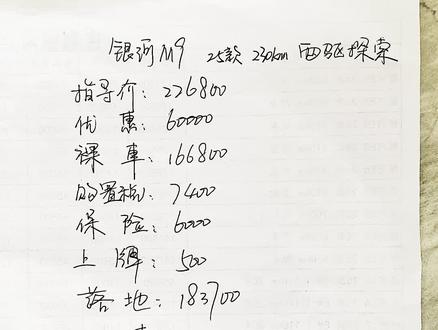 银河M9 25款 230km 四驱探索
指导价：226800
优惠：60000
裸車：166800
购置税：7400
保险：6000
上牌：500
落地：183700